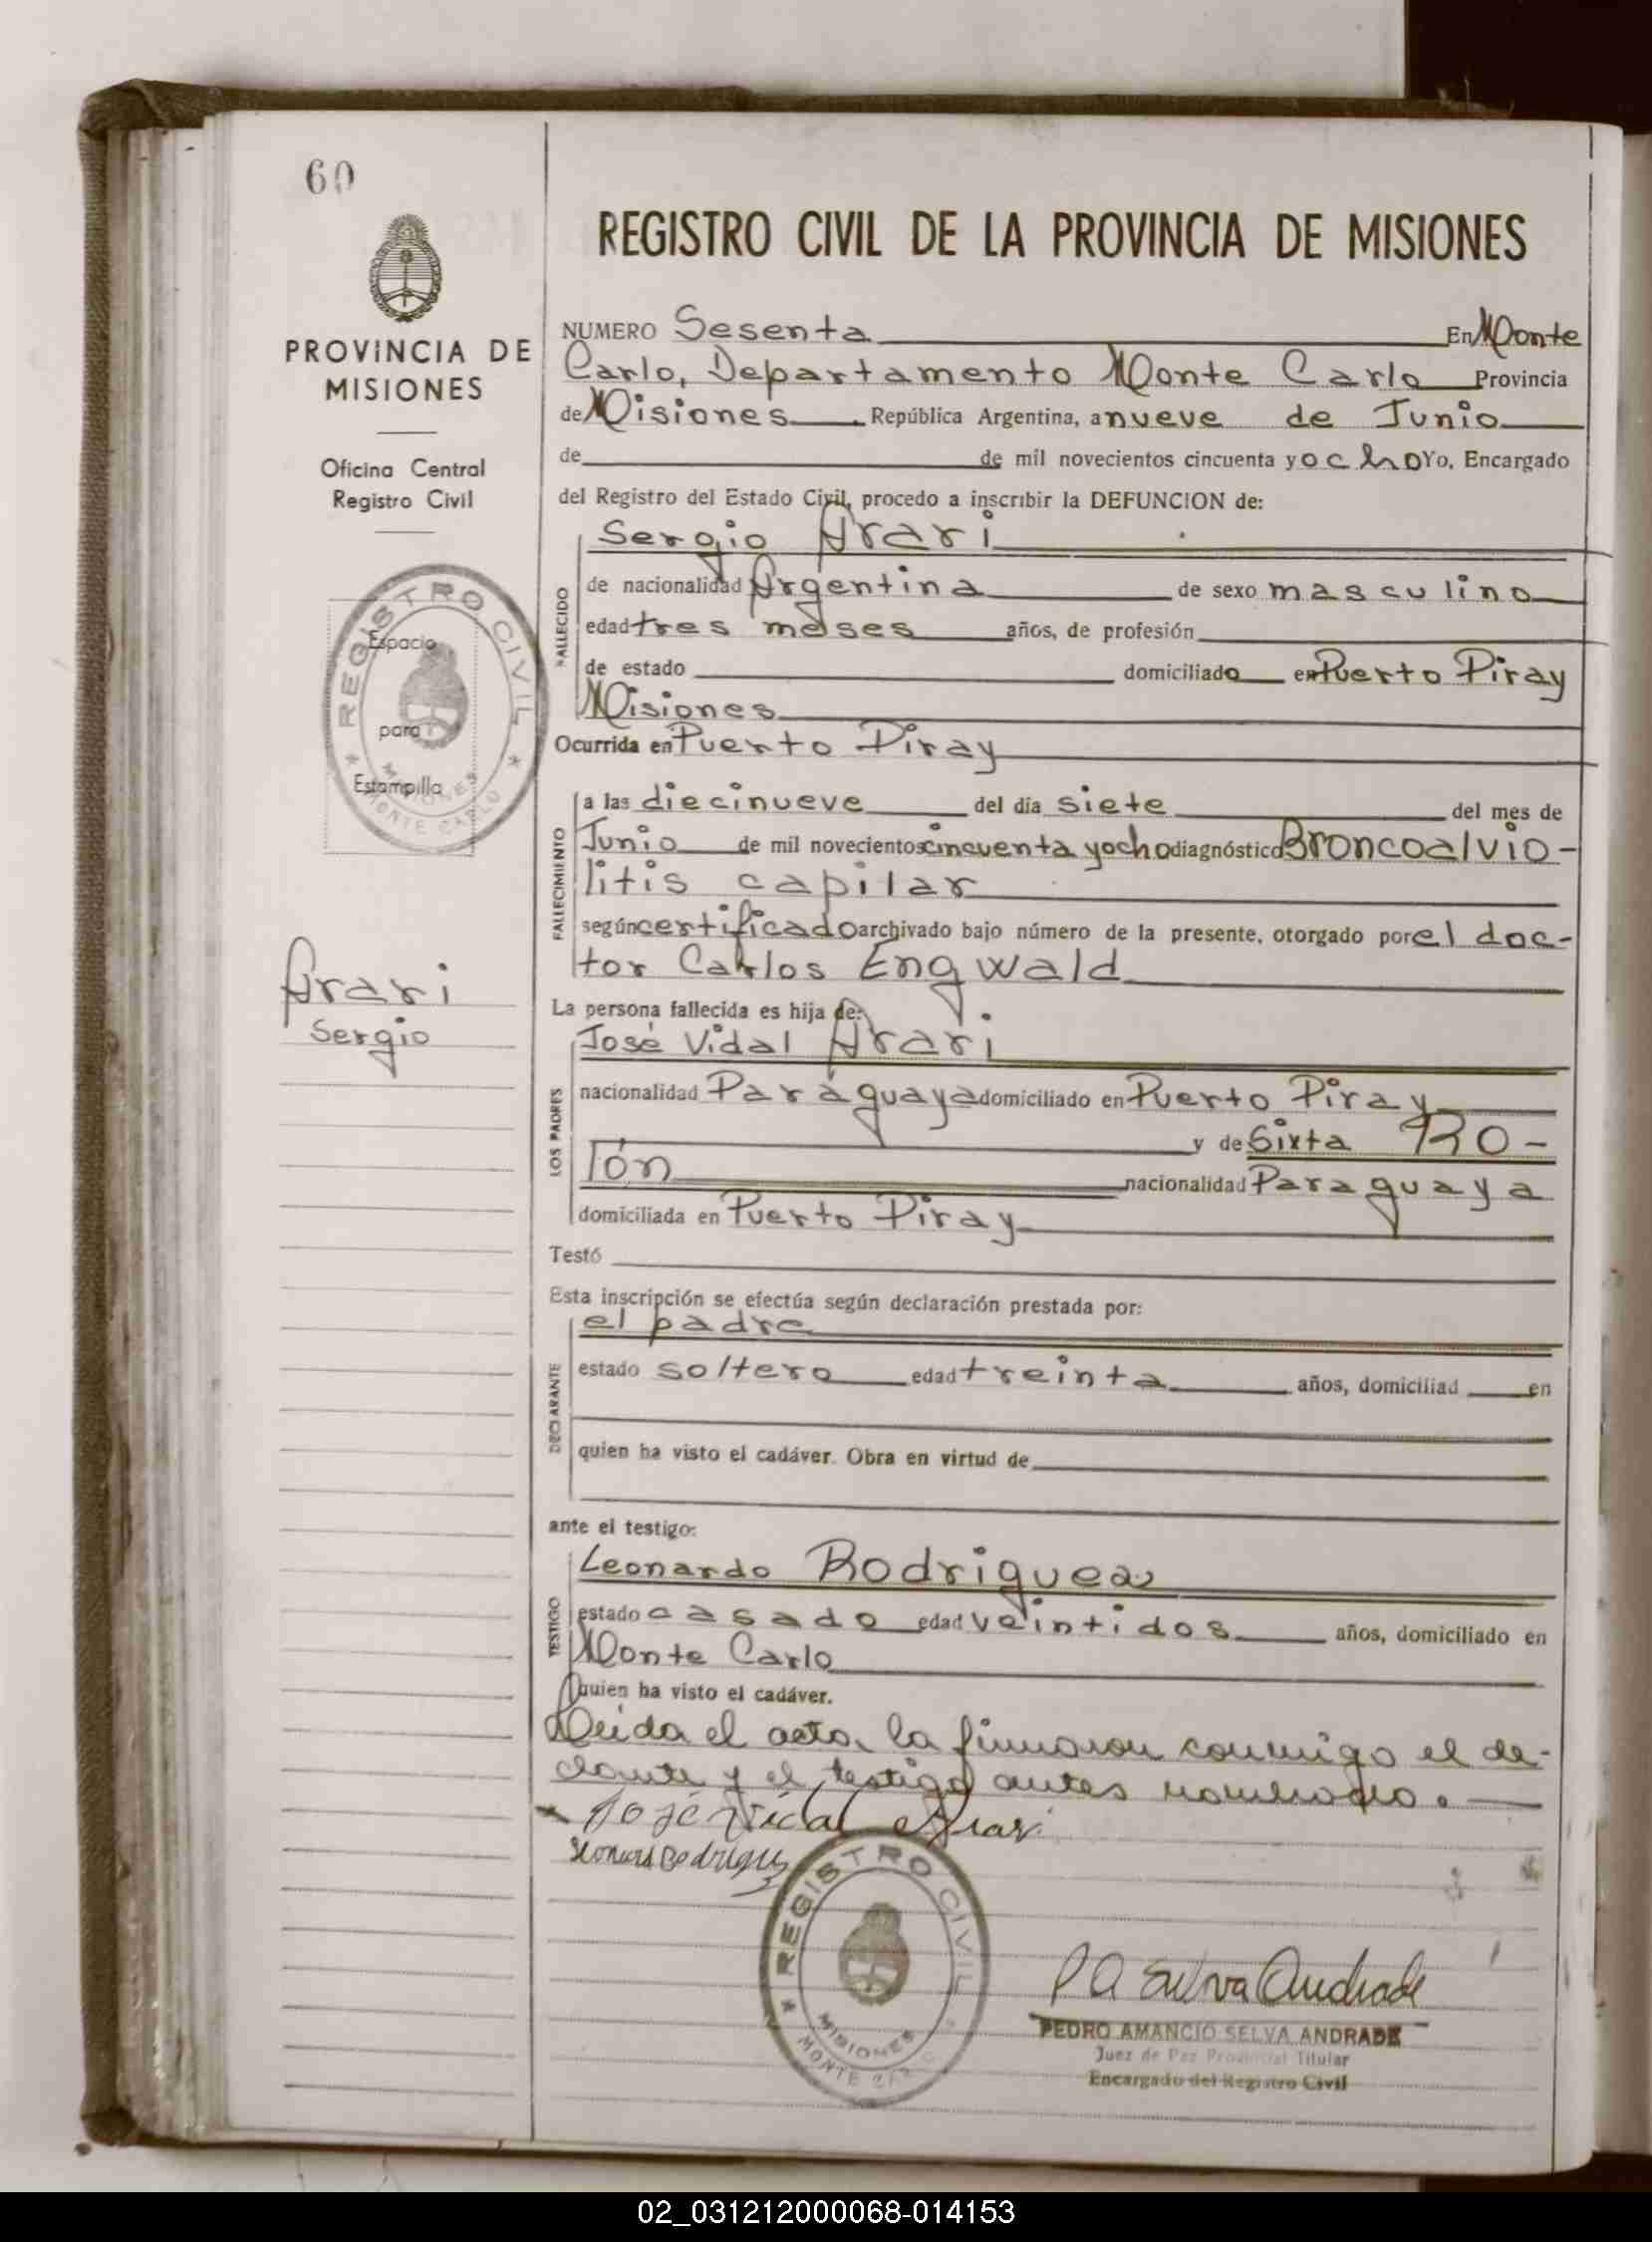 60
REGISTRO CIVIL DE LA PROVINCIA DE MISIONES
PROVINCIA DE
MISIONES
Oficina Central
Registro Civil
REGISTRO CIVIL
Espacio
para
Estampilla
MISIONES
MONTE CARLO
Arari
Sergio
NUMERO Sesenta En Monte
Carlo, Departamento Monte Carlo Provincia
de Misiones . República Argentina, a nueve de Junio
de de mil novecientos cincuenta y ocho Yo, Encargado
del Registro del Estado Civil, procedo a inscribir la DEFUNCION de:
Sergio Arari
FALLECIDO
de nacionalidad Argentina de sexo masculino
edad tres meses años, de profesión
de estado domiciliado en Puerto Piray
Misiones
Ocurrida en Puerto Piray
FALLECIMIENTO
a las diecinueve del día siete del mes de
Junio de mil novecientos cincuenta y ocho diagnóstico Broncoalvio-
litis capilar
según certificado archivado bajo número de la presente, otorgado por el doc-
tor Carlos Engwald
La persona fallecida es hija de:
José Vidal Arari
LOS PADRES
nacionalidad Paraguaya domiciliado en Puerto Piray
y de Sixta Ro-
lón nacionalidad Paraguaya
domiciliada en Puerto Piray
Testó
Esta inscripción se efectúa según declaración prestada por:
el padre
DECLARANTE
estado soltero edad treinta años, domiciliad en
quien ha visto el cadáver. Obra en virtud de
ante el testigo:
Leonardo Rodriguez
TESTIGO
estado casado edad veintidos años, domiciliado en
Monte Carlo
quien ha visto el cadáver.
Leida el acta, la firmaron conmigo el de-
clante y el testigo antes nombrado.
José Vidal Arari
REGISTRO CIVIL
MISIONES
MONTE CARLO
P A Selva Andrade
PEDRO AMANCIO SELVA ANDRADE
Juez de Paz Provincial Titular
Encargado del Registro Civil
02_031212000068-014153